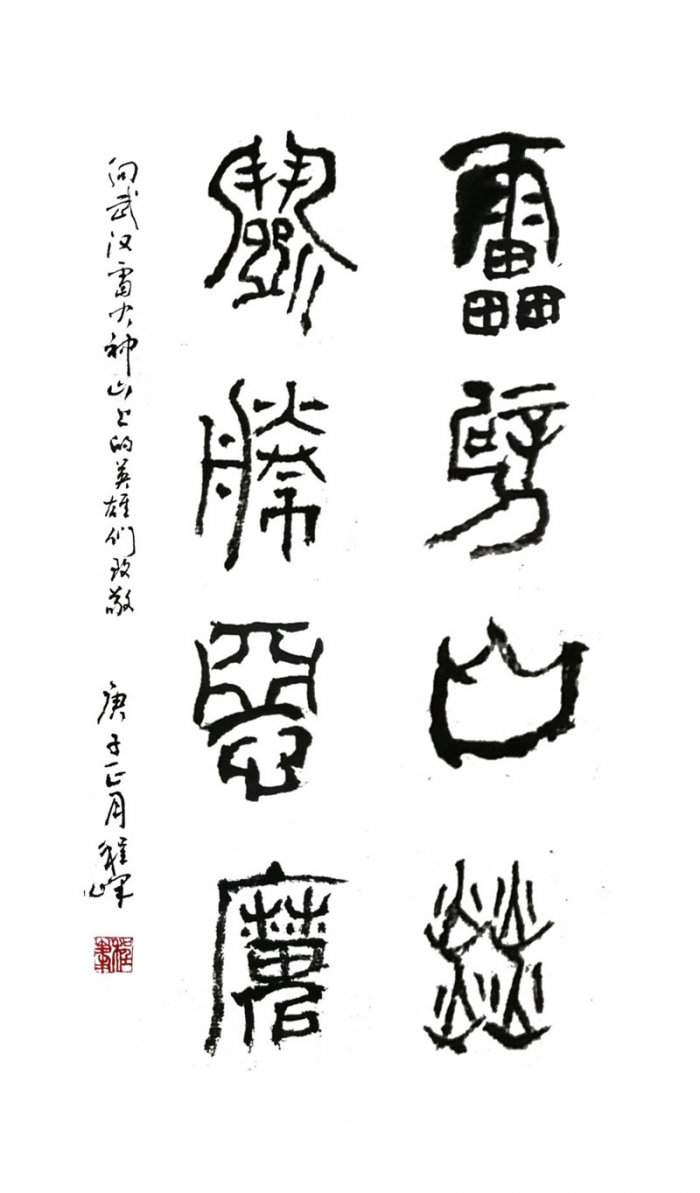 雷劈山燚
鬭勝惡魔
向武汉雷火神山上的英雄们致敬 庚子正月程峰